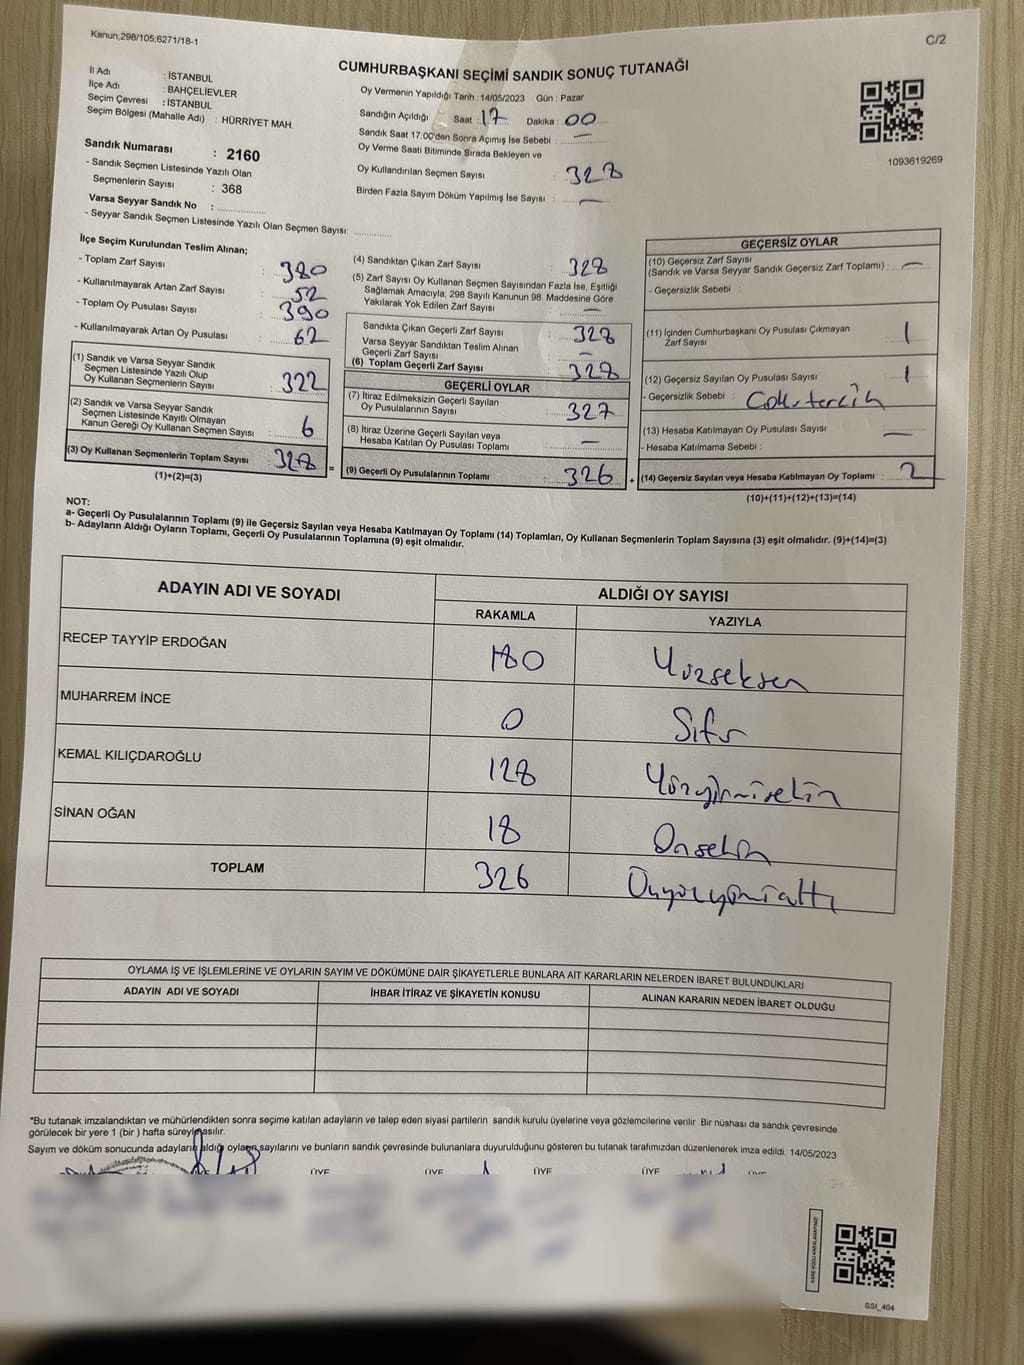 Kanun:298/105;6271/18-1
C/2
CUMHURBAŞKANI SEÇİMİ SANDIK SONUÇ TUTANAĞI
İl Adı : İSTANBUL
İlçe Adı : BAHÇELİEVLER
Seçim Çevresi : İSTANBUL
Seçim Bölgesi (Mahalle Adı) : HÜRRİYET MAH.
Sandık Numarası : 2160
- Sandık Seçmen Listesinde Yazılı Olan
Seçmenlerin Sayısı : 368
Varsa Seyyar Sandık No :
- Seyyar Sandık Seçmen Listesinde Yazılı Olan Seçmen Sayısı:
Oy Vermenin Yapıldığı Tarih : 14/05/2023 Gün : Pazar
Sandığın Açıldığı Saat : 17 Dakika : 00
Sandık Saat 17:00'den Sonra Açılmış İse Sebebi : —
Oy Verme Saati Bitiminde Sırada Bekleyen ve
Oy Kullandırılan Seçmen Sayısı : 328
Birden Fazla Sayım Döküm Yapılmış İse Sayısı : —
1093619269
İlçe Seçim Kurulundan Teslim Alınan;
- Toplam Zarf Sayısı : 380
- Kullanılmayarak Artan Zarf Sayısı : 52
- Toplam Oy Pusulası Sayısı : 390
- Kullanılmayarak Artan Oy Pusulası : 62
(1) Sandık ve Varsa Seyyar Sandık
Seçmen Listesinde Yazılı Olup
Oy Kullanan Seçmenlerin Sayısı : 322
(2) Sandık ve Varsa Seyyar Sandık
Seçmen Listesinde Kayıtlı Olmayan
Kanun Gereği Oy Kullanan Seçmen Sayısı : 6
(3) Oy Kullanan Seçmenlerin Toplam Sayısı : 328
(1)+(2)=(3)
(4) Sandıktan Çıkan Zarf Sayısı : 328
(5) Zarf Sayısı Oy Kullanan Seçmen Sayısından Fazla İse, Eşitliği
Sağlamak Amacıyla, 298 Sayılı Kanunun 98. Maddesine Göre
Yakılarak Yok Edilen Zarf Sayısı : —
Sandıkta Çıkan Geçerli Zarf Sayısı : 328
Varsa Seyyar Sandıktan Teslim Alınan
Geçerli Zarf Sayısı : —
(6) Toplam Geçerli Zarf Sayısı : 328
GEÇERLİ OYLAR
(7) İtiraz Edilmeksizin Geçerli Sayılan
Oy Pusulalarının Sayısı : 327
(8) İtiraz Üzerine Geçerli Sayılan veya
Hesaba Katılan Oy Pusulası Toplamı : —
= (9) Geçerli Oy Pusulalarının Toplamı : 326
GEÇERSİZ OYLAR
(10) Geçersiz Zarf Sayısı
(Sandık ve Varsa Seyyar Sandık Geçersiz Zarf Toplamı) : —
- Geçersizlik Sebebi :
(11) İçinden Cumhurbaşkanı Oy Pusulası Çıkmayan
Zarf Sayısı : 1
(12) Geçersiz Sayılan Oy Pusulası Sayısı : 1
- Geçersizlik Sebebi :
(13) Hesaba Katılmayan Oy Pusulası Sayısı : —
- Hesaba Katılmama Sebebi :
+ (14) Geçersiz Sayılan veya Hesaba Katılmayan Oy Toplamı : 2
(10)+(11)+(12)+(13)=(14)
NOT:
a- Geçerli Oy Pusulalarının Toplamı (9) ile Geçersiz Sayılan veya Hesaba Katılmayan Oy Toplamı (14) Toplamları, Oy Kullanan Seçmenlerin Toplam Sayısına (3) eşit olmalıdır. (9)+(14)=(3)
b- Adayların Aldığı Oyların Toplamı, Geçerli Oy Pusulalarının Toplamına (9) eşit olmalıdır.
ADAYIN ADI VE SOYADI ALDIĞI OY SAYISI
RAKAMLA YAZIYLA
RECEP TAYYİP ERDOĞAN 180 Yüzseksen
MUHARREM İNCE 0 Sıfır
KEMAL KILIÇDAROĞLU 128 Yüzyirmisekiz
SİNAN OĞAN 18 Onsekiz
TOPLAM 326 Üçyüzyirmialtı
OYLAMA İŞ VE İŞLEMLERİNE VE OYLARIN SAYIM VE DÖKÜMÜNE DAİR ŞİKAYETLERLE BUNLARA AİT KARARLARIN NELERDEN İBARET BULUNDUKLARI
ADAYIN ADI VE SOYADI İHBAR İTİRAZ VE ŞİKAYETİN KONUSU ALINAN KARARIN NEDEN İBARET OLDUĞU
"Bu tutanak imzalandıktan ve mühürlendikten sonra seçime katılan adayların ve talep eden siyasi partilerin sandık kurulu üyelerine veya gözlemcilerine verilir. Bir nüshası da sandık çevresinde
görülecek bir yere 1 (bir ) hafta süreyle asılır.
Sayım ve döküm sonucunda adayların aldığı oyların sayılarını ve bunların sandık çevresinde bulunanlara duyurulduğunu gösteren bu tutanak tarafımızdan düzenlenerek imza edildi. 14/05/2023
ÜYE ÜYE ÜYE ÜYE ÜYE
SSI_404